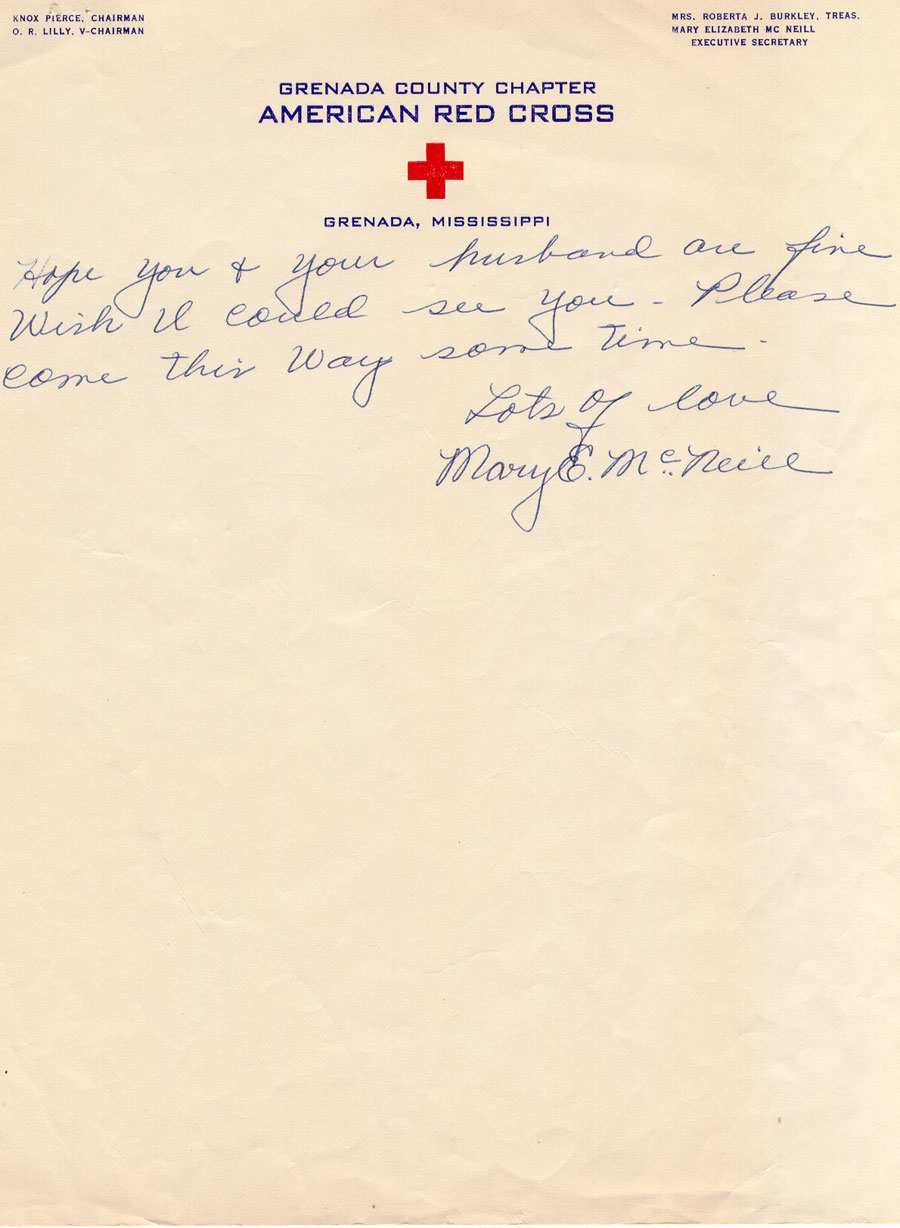 KNOX PIERCE, CHAIRMAN
O. R. LILLY, V-CHAIRMAN
MRS. ROBERTA J. BURKLEY, TREAS.
MARY ELIZABETH MC NEILL
EXECUTIVE SECRETARY
GRENADA COUNTY CHAPTER
AMERICAN RED CROSS
GRENADA, MISSISSIPPI
Hope you & your husband are fine
Wish I could see you - Please
come this way some time -
Lots of love
Mary E. McNeill